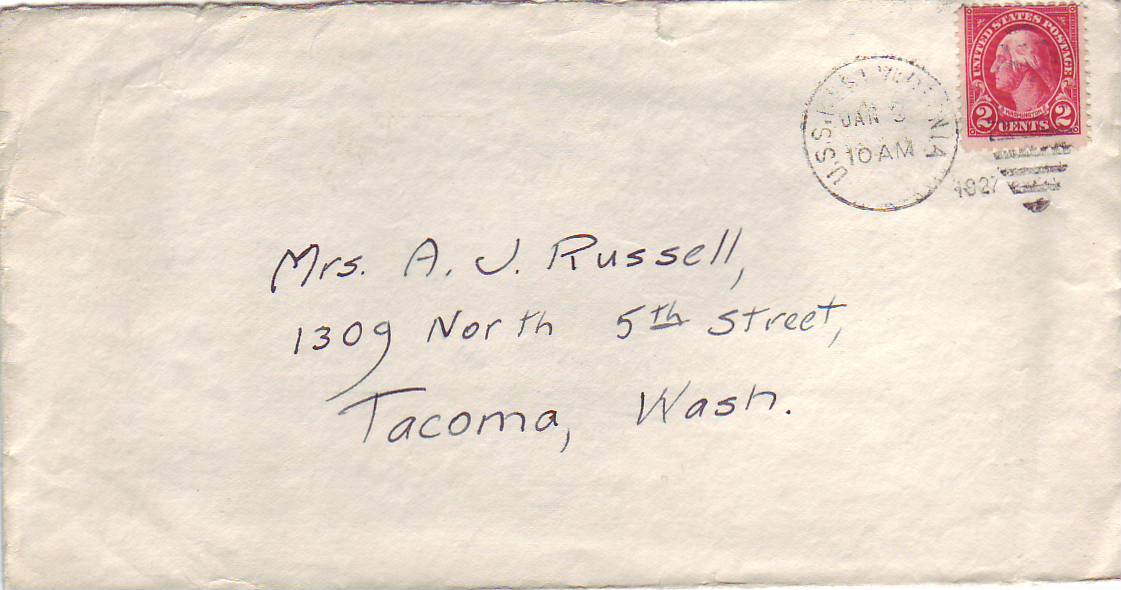 UNITED STATES POSTAGE
WASHINGTON
2 CENTS 2
U.S.S.
JAN 3
10 AM
1927
Mrs. A. J. Russell,
1309 North 5th Street,
Tacoma, Wash.